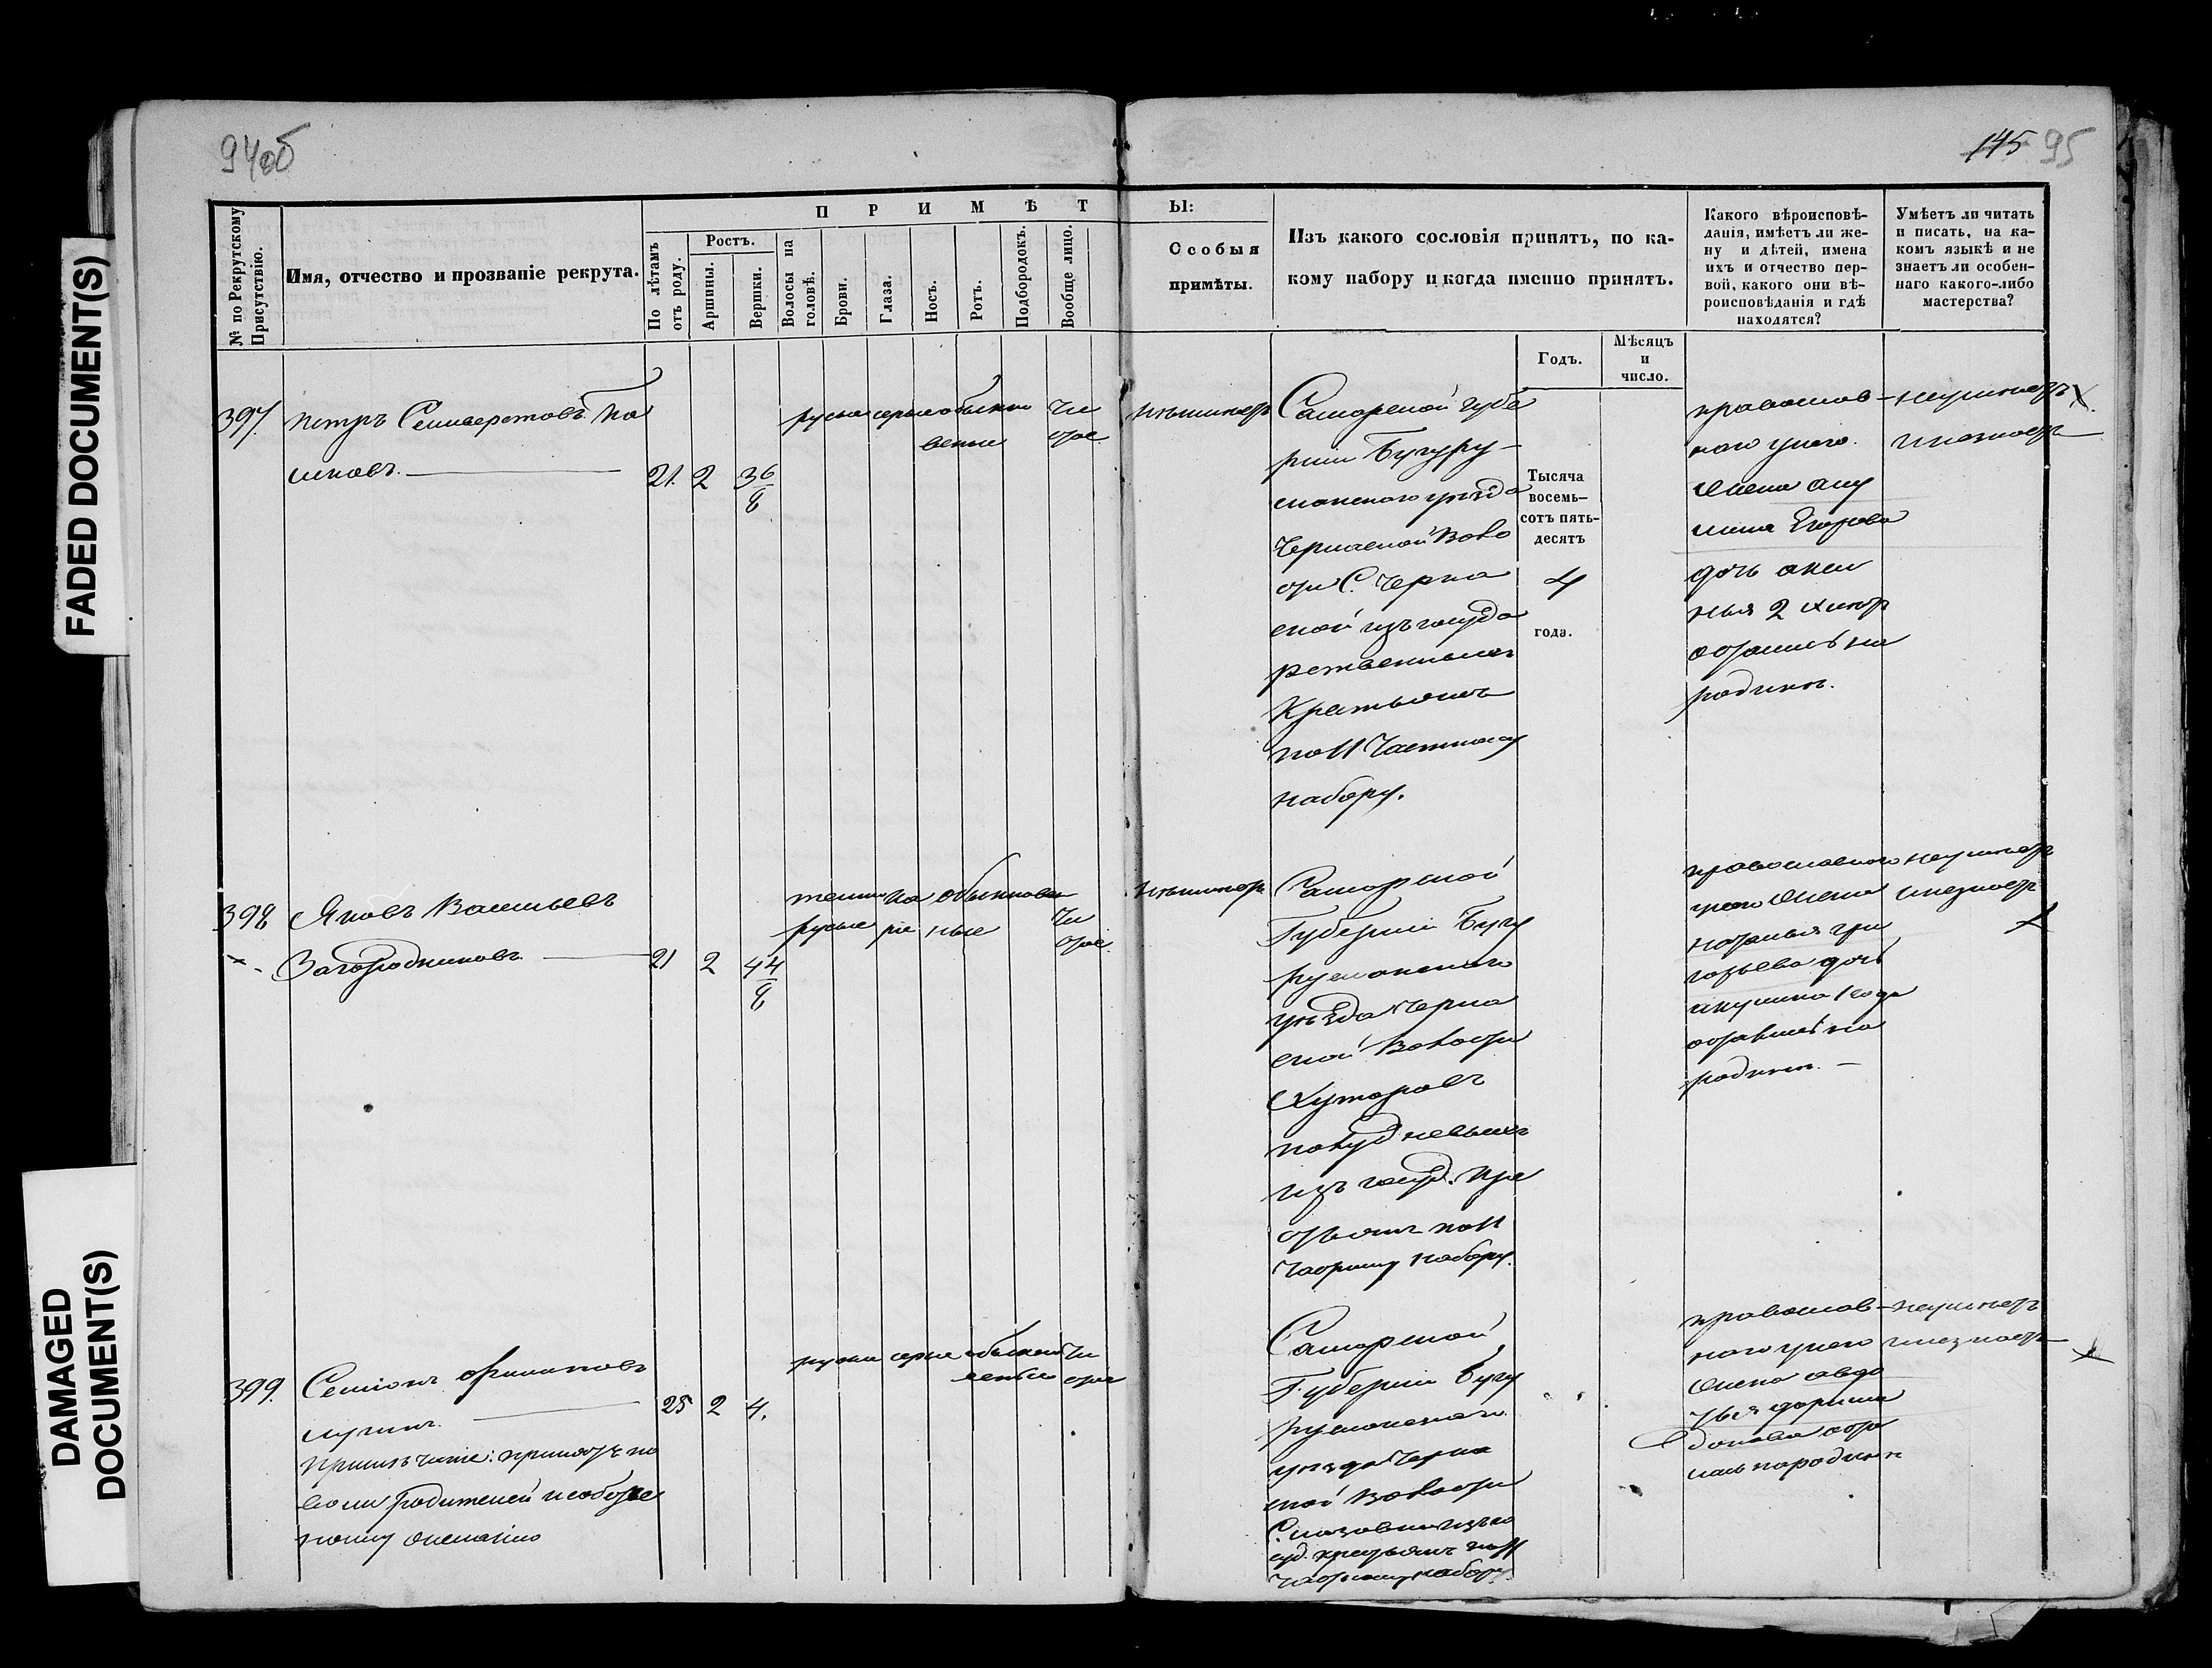 94об
145 95
FADED DOCUMENT(S)
DAMAGED
DOCUMENT(S)
№ по Рекрутскому
Присутствію.
Имя, отчество и прозваніе рекрута.
П Р И М Ѣ Т Ы:
По лѣтамъ
отъ роду.
Ростъ.
Аршины.
Вершки.
Волосы на
головѣ.
Брови.
Глаза.
Носъ.
Ротъ.
Подбородокъ.
Вообще лицо.
Особыя
примѣты.
Изъ какого сословія принятъ, по ка-
кому набору и когда именно принятъ.
Годъ.
Мѣсяцъ
и
число.
Какого вѣроисповѣ-
данія, имѣетъ ли же-
ну и дѣтей, имена
ихъ и отчество пер-
вой, какого они вѣ-
роисповѣданія и гдѣ
находятся?
Умѣетъ ли читать
и писать, на ка-
комъ языкѣ и не
знаетъ ли особен-
наго какого-либо
мастерства?
397.
петръ Селиверстовъ
21. 2 3 6/8
русые серые обыкно
венные
чи
стое
неимѣетъ
Самарской губе
рніи Бугуру-
сланскаго уѣзда
Черкаской Воло
сти С. Черка
ской изъ госуда
рственныхъ
Крестьянъ
по 11 Частному
набору.
Тысяча
восемь-
сотъ пять-
десятъ
4
года.
православ-
наго у него
жена аку
лина Егорова
дочь аксен
нья 2 лѣтъ
остались на
родинѣ.
неумѣетъ
и незнаетъ
398
Яковъ Васильевъ
Загородниковъ
21 2 4 4/8
темно
русые
ка
рie
обыкновен
ные
чи
стое
неимѣетъ
Самарской
Губерніи Бугу
русланскаго
уѣзда Черка
ской Волости
Хуторовъ
полудневыхъ
изъ госуд. кре
стьянъ по 11
Частному набору.
православнаго
у него жена
наталья гри
горьева дочь
акулина 1 года
остались на
родинѣ.
неумѣетъ
и незнаетъ
399.
Семіонъ
25 2 4.
Примѣчаніе: принятъ по
воли родителей и собстве
нному желанію
русые серые обыкно
венные
чи
стое
Самарской
Губерніи Бугу
русланскаго
уѣзда Черка
ской Волости
суд. крестьянъ по 11
Частному набору
православ-
наго у него
жена авдо
тья
осталась
на родинѣ
неумѣетъ
и незнаетъ